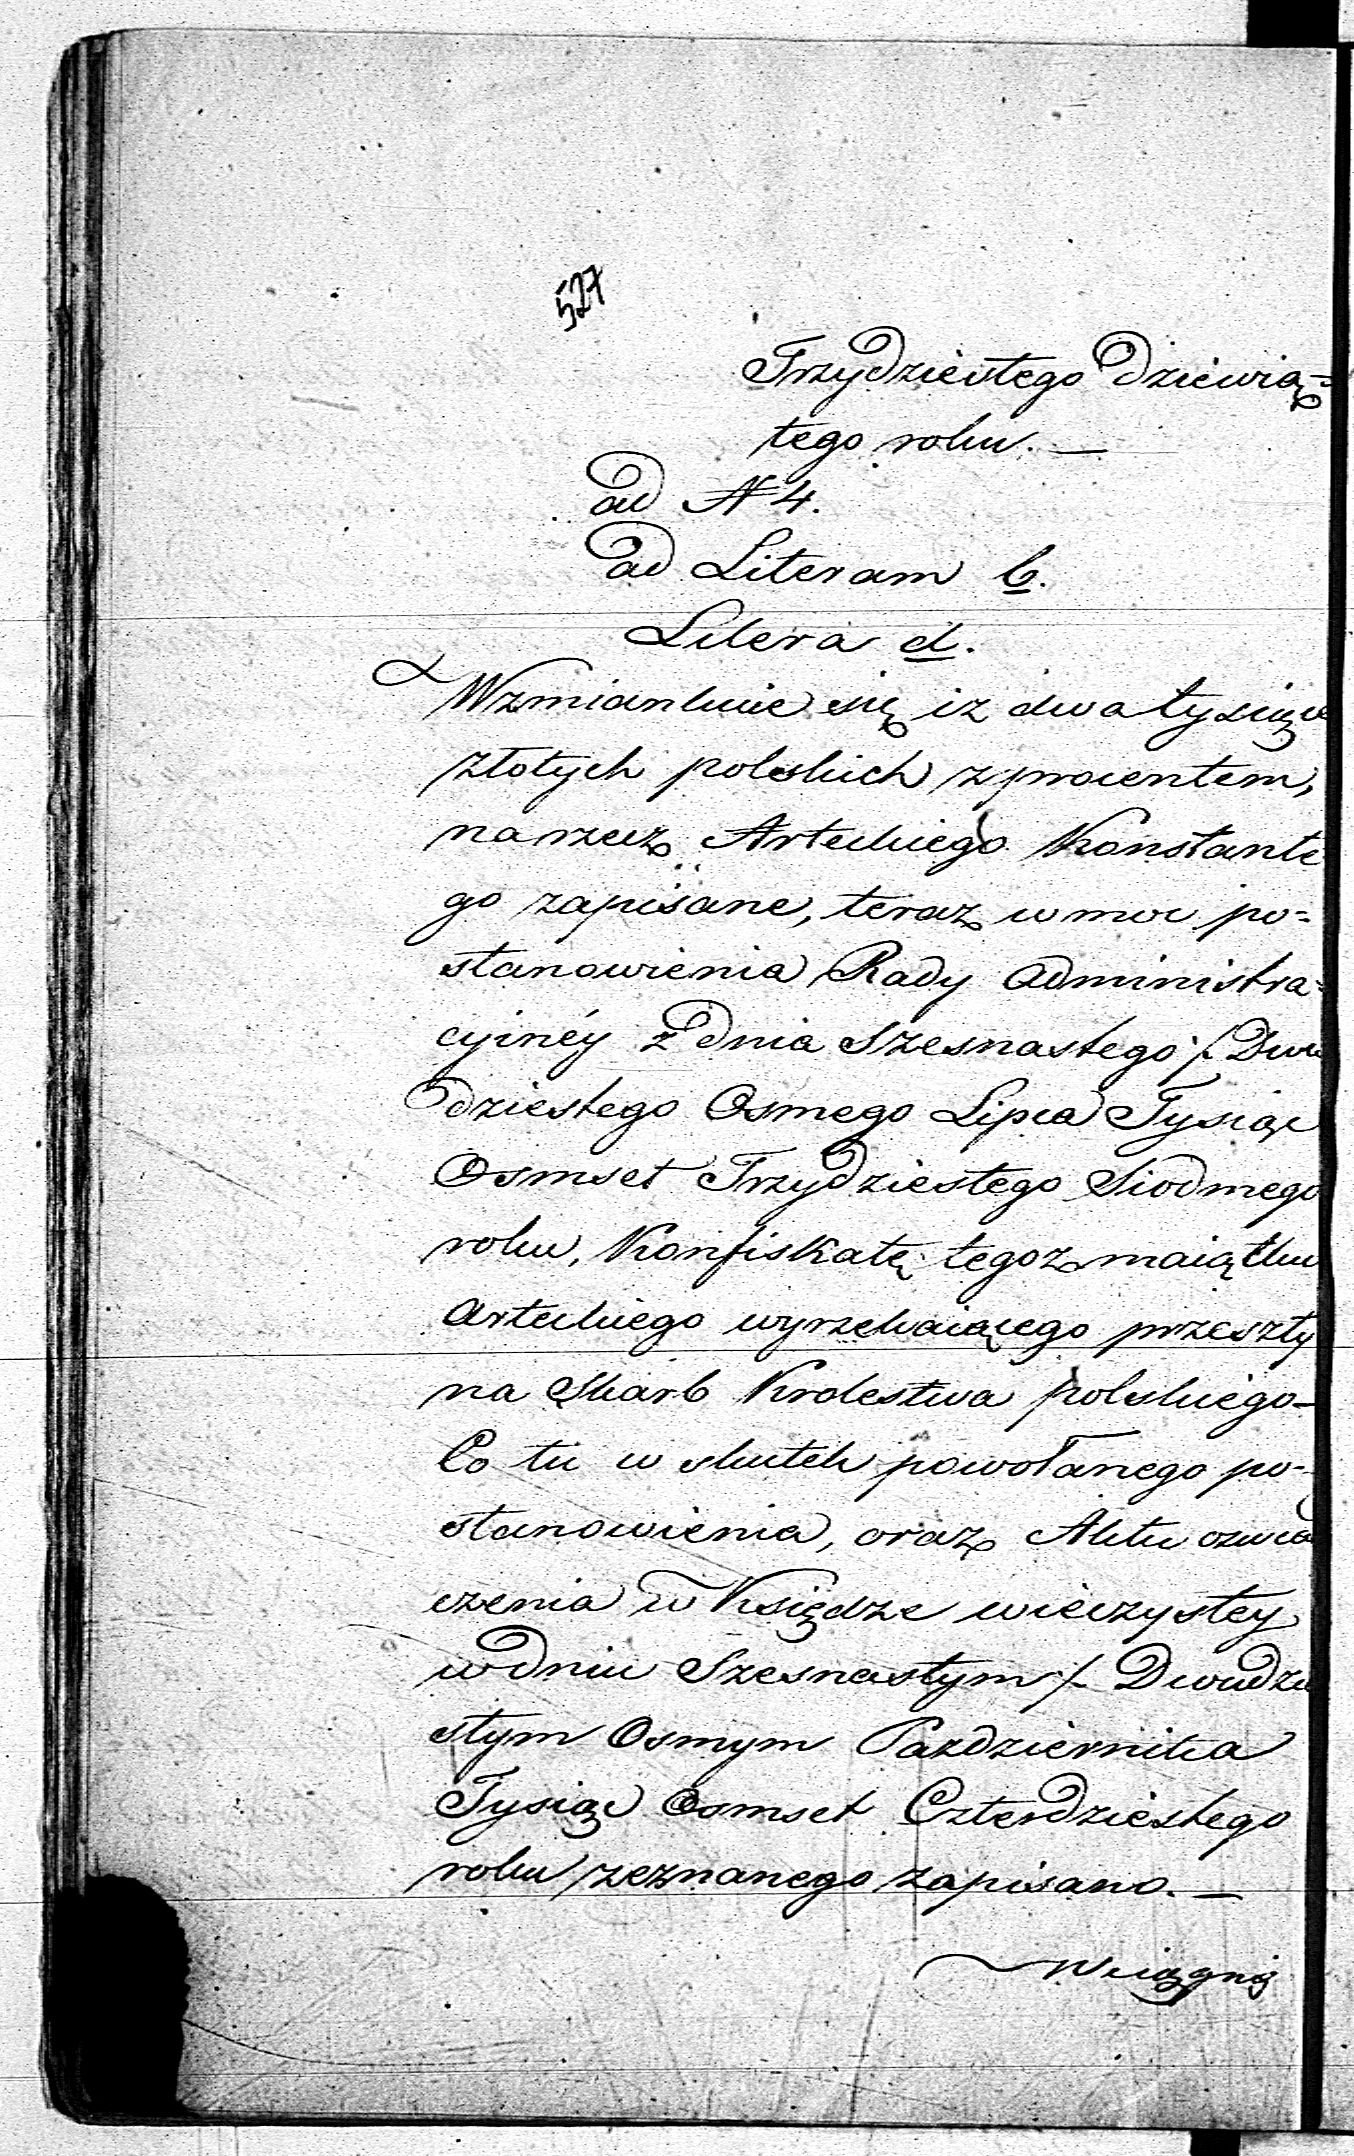 527
Trzydziestego dziewią=
tego roku. —
ad N 4.
ad Literam b.
Litera d.
Wzmiankuie się iż dwa tysiące
złotych polskich z procentem,
na rzecz Arteckiego Konstante
go zapisane, teraz w moc po=
stanowienia Rady Administra=
cyinéy z dnia Szesnastego /. Dwu
dziestego Osmego Lipca Tysiąc
Osmset Trzydziestego Siodmego
roku, Konfiskatę tegoż maiątku
Arteckiego wyrzekaiącego przeszły
na Skarb Krolestwa polskiego —
Co tu w skutek powołanego po=
stanowienia, oraz Aktu
czenia w Księdze wieczystey
w dniu Szesnastym /. Dwudzie
stym Osmym Pazdziernika
Tysiąc Osmset Czterdziestego
roku zeznanego zapisano. —
Wciągnię